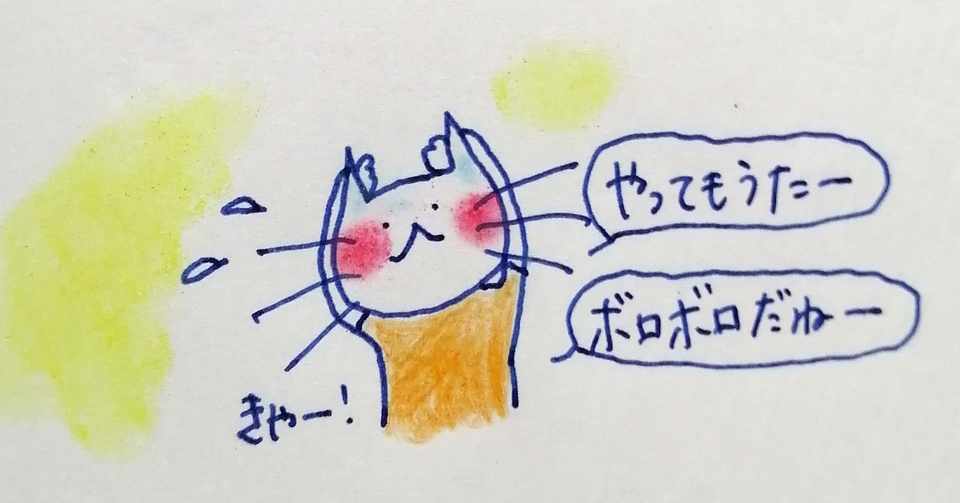 やってもうたー
ボロボロだねー
きゃー!